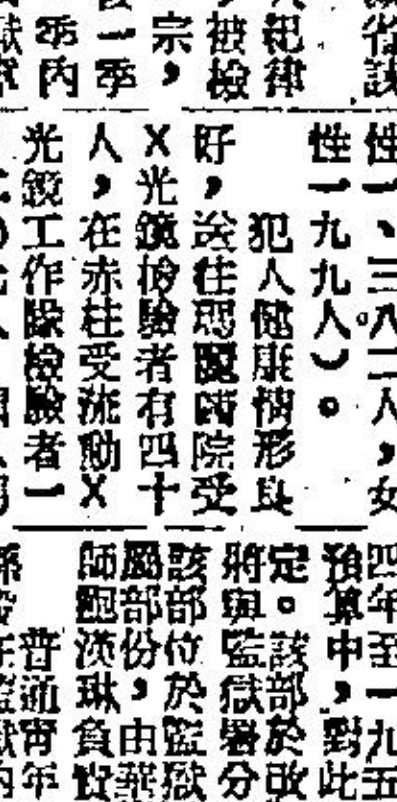 省該
紀律
被檢
宗，
一季
季內
性一、三八二人，女
性一九九人）。
犯人健康情形良
好，送往瑪麗醫院受
X光鏡檢驗者有四十
人，在赤柱受流動X
光鏡工作隊檢驗者一
四年至一九五
預算中，對此
定。該部於改
將與監獄署分
該部位於監獄
屬部份，由華
師甄漢琳負責
普通青年